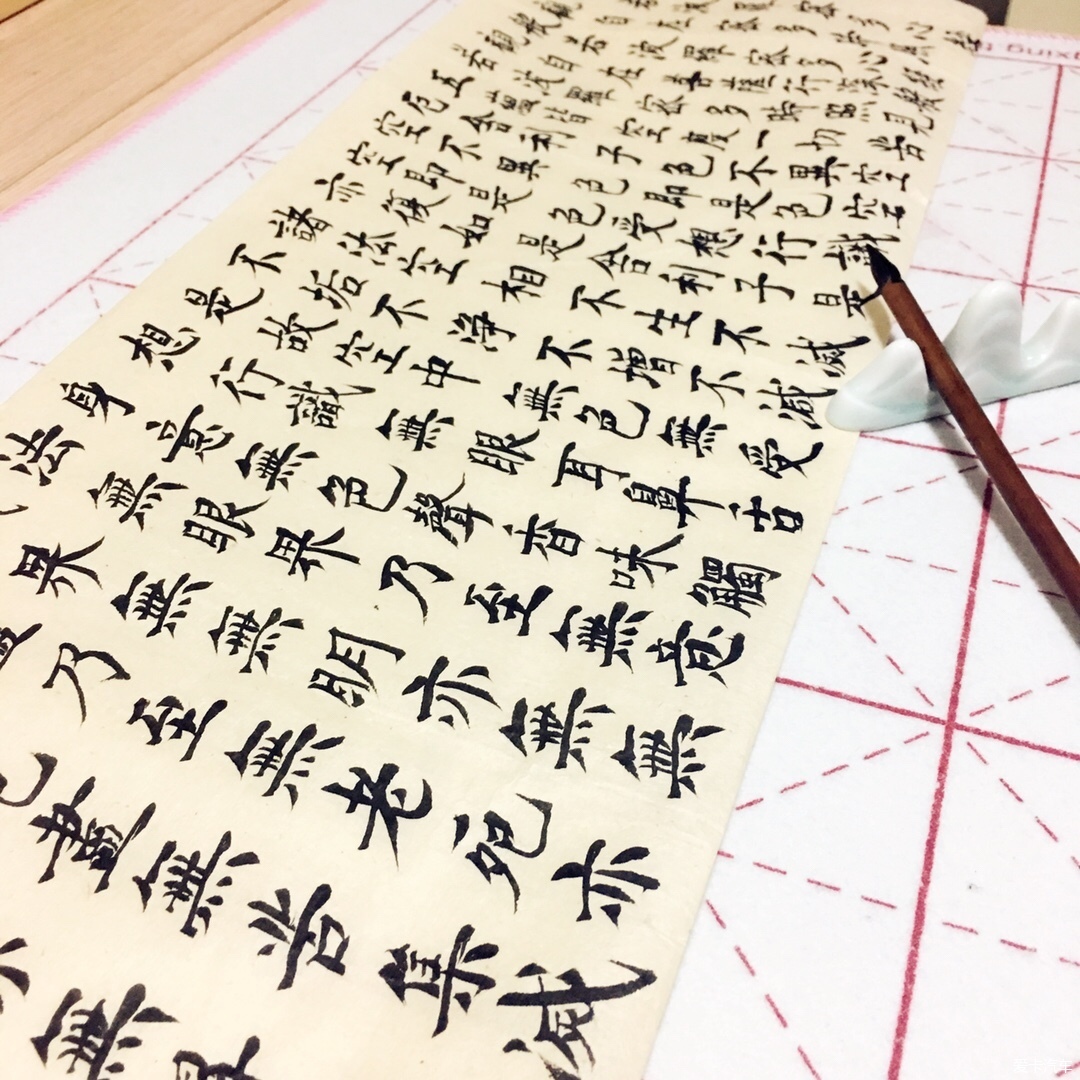 觀自在菩薩行深般
若波羅蜜多時照見
五蘊皆空度一切苦
厄舍利子色不異空
空不異色即是色空
空即是色受想行識
亦復如是舍利子是
諸法空相不生不滅
不垢不淨不增不減
是故空中無色無受
想行識無眼耳鼻舌
身意無色聲香味觸
法無眼界乃至無意
界無無明亦無無
乃至無老死亦
盡無苦集滅
無